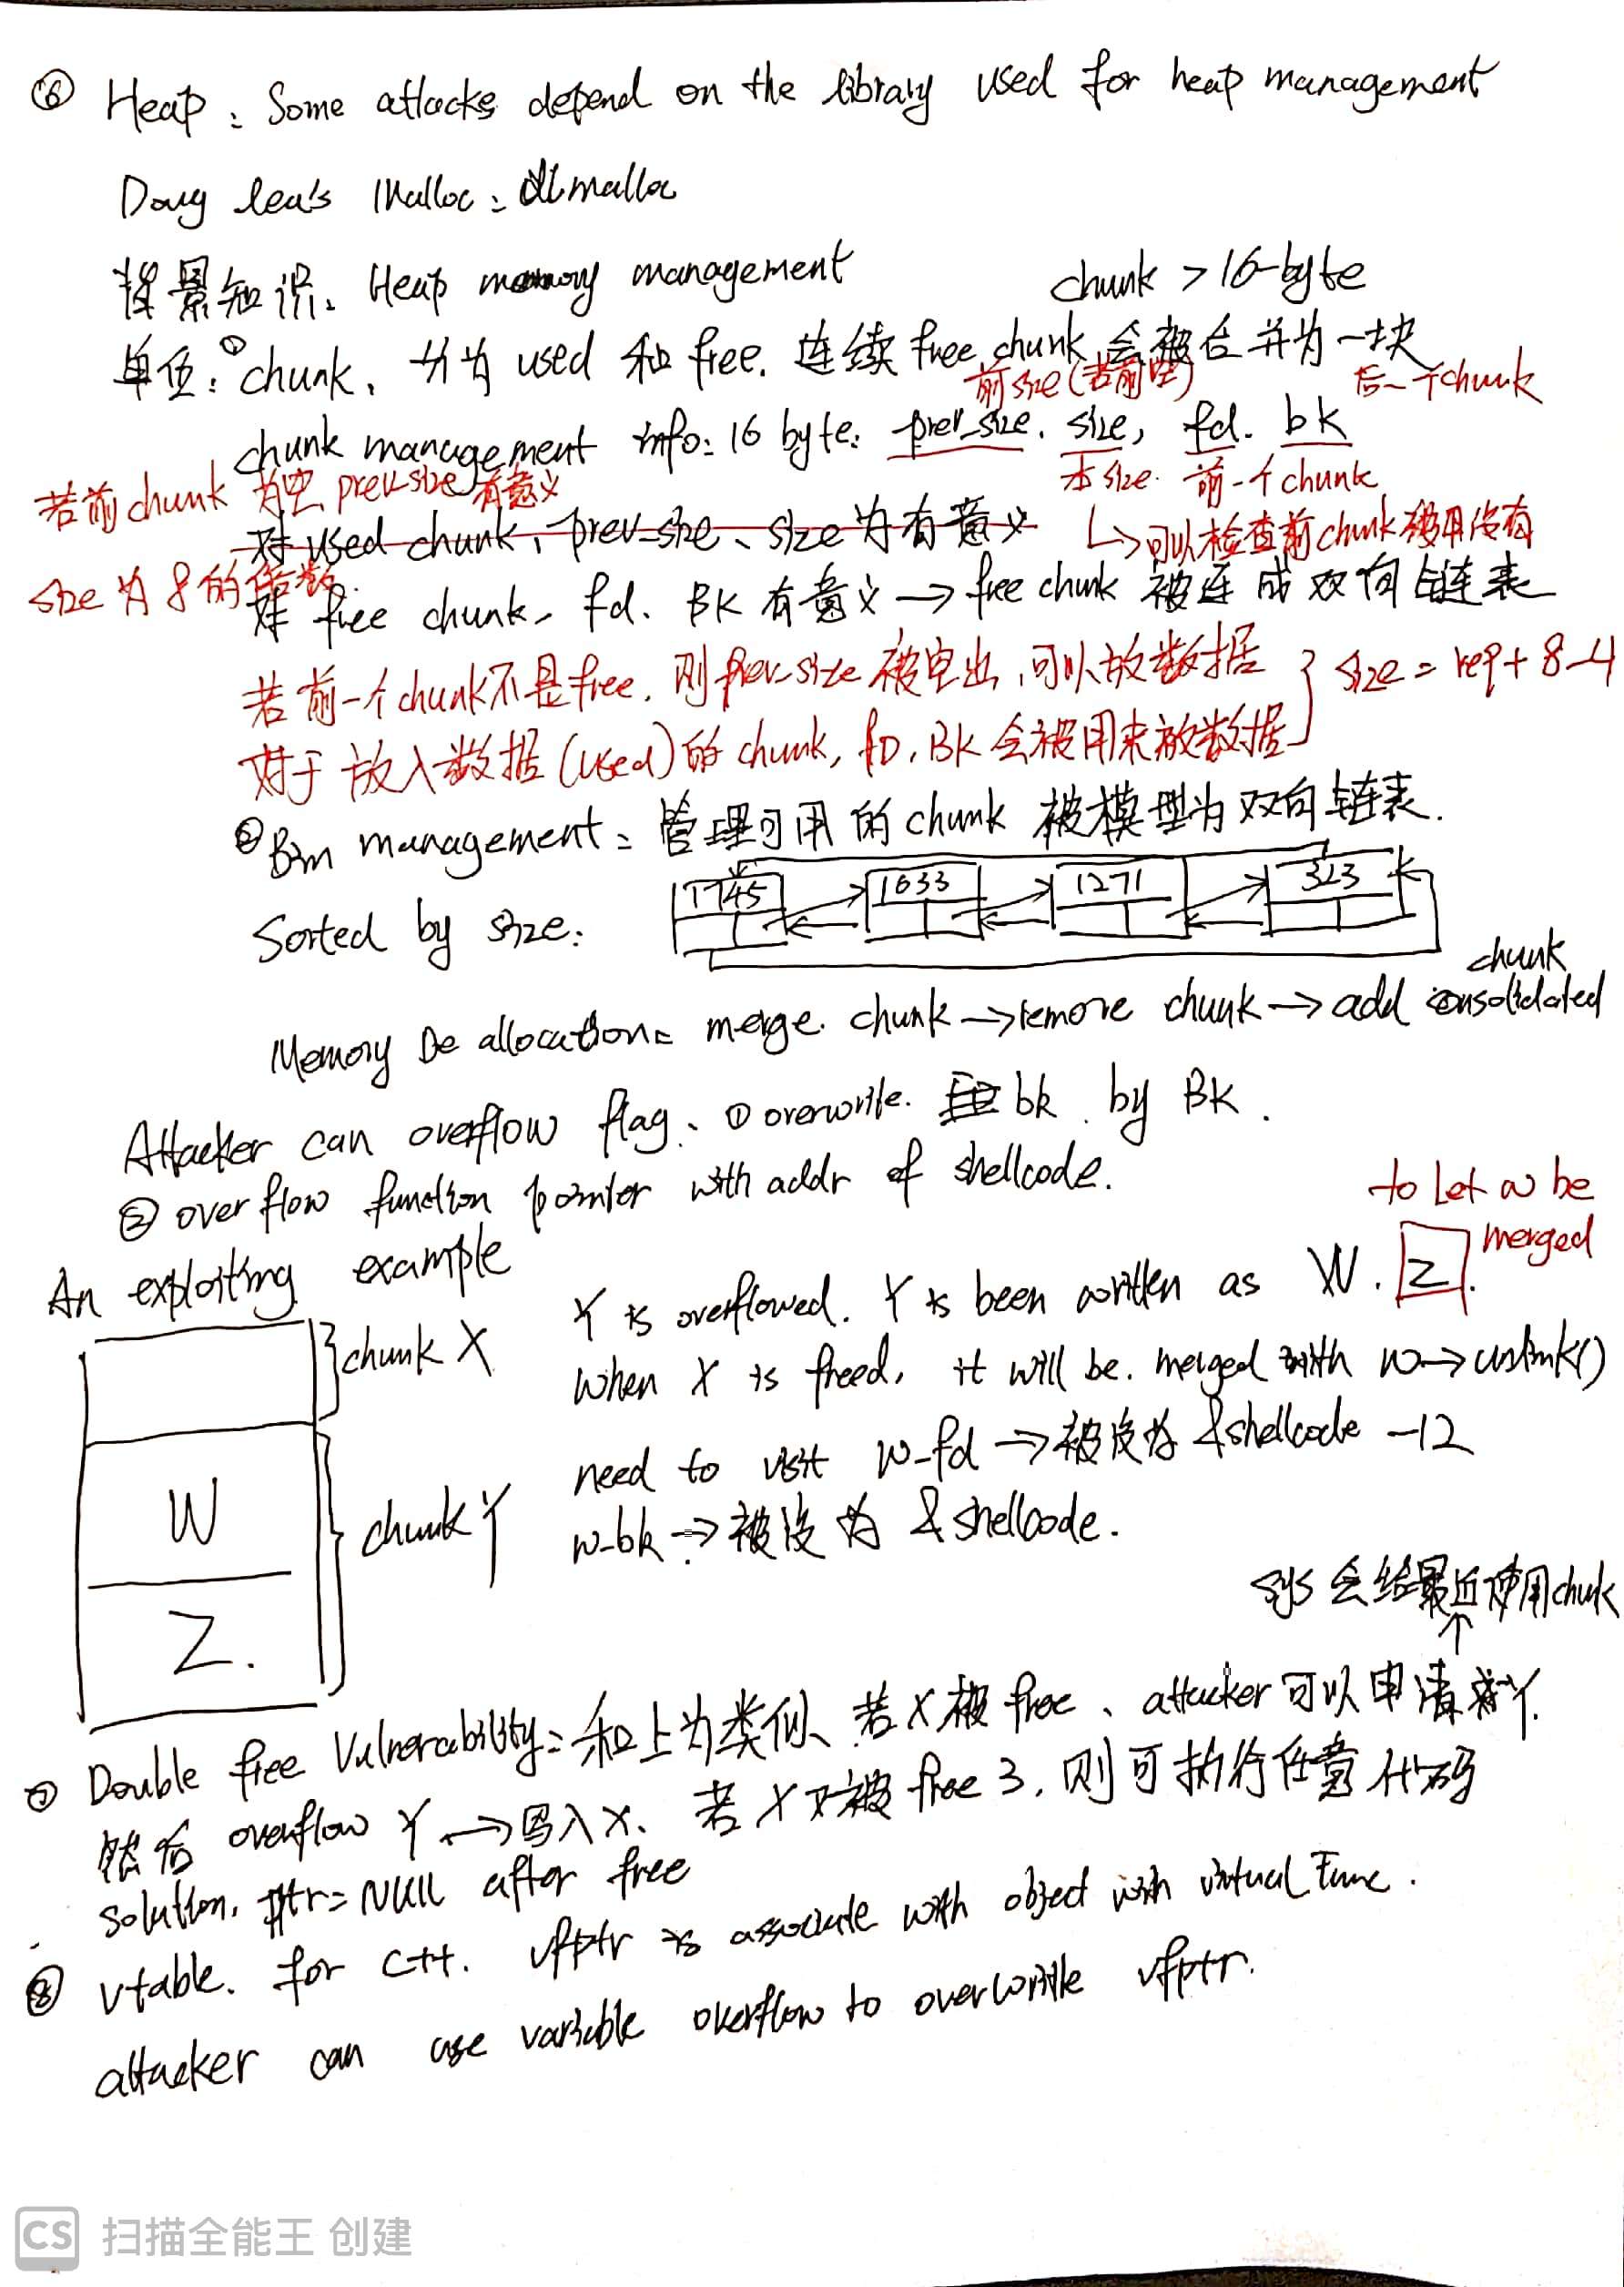 ⑥ Heap: Some attacks depend on the library used for heap management
Doug lea's Malloc: dlmalloc
背景知识: Heap memory management
chunk > 16-byte
单位: ① chunk, 分为 used 和 free. 连续 free chunk 会被合并为一块
前 size (若前空)
后一个chunk
chunk management info: 16 byte: prev_size. size, fd. bk
本 size. 前一个chunk
若前 chunk 为空 prev-size 有意义
对 used chunk, prev-size、size 为有意义
↳可以检查前chunk被用没有
size 为 8 的倍数.
对 free chunk, fd. BK 有意义 → free chunk 被连成双向链表
若前一个chunk不是free. 则prev-size 被空出, 可以放数据
size = req + 8 - 4
对于放入数据 (used) 的 chunk, fD, BK 会被用来放数据
② Bin management: 管理可用的 chunk 被模型为双向链表.
1745 1633 1271 323
Sorted by size:
Memory De allocation: merge. chunk → remove chunk → add consolidated chunk
Attacker can overflow flag. ① overwrite. bk by BK.
② overflow function pointer with addr of shellcode.
to Let w be merged
An exploiting example
Y is overflowed. Y is been written as W. Z.
chunk X
When X is freed, it will be. merged with w → unlink()
need to visit w-fd → 被设为 &shellcode -12
W
chunk Y
w-bk → 被设为 &shellcode.
Z.
sys 会给最近使用chuk
⑦ Double free Vulnerability: 和上为类似、若X被 free、attacker 可以申请 Y.
然后 overflow Y → 写入X、若 X 又被 free 3, 则可执行任意代码
solution, ptr = NULL after free
⑧ vtable. for C++. vfptr is associate with object with virtual Func.
attacker can use variable overflow to overwrite vfptr.
CS 扫描全能王 创建